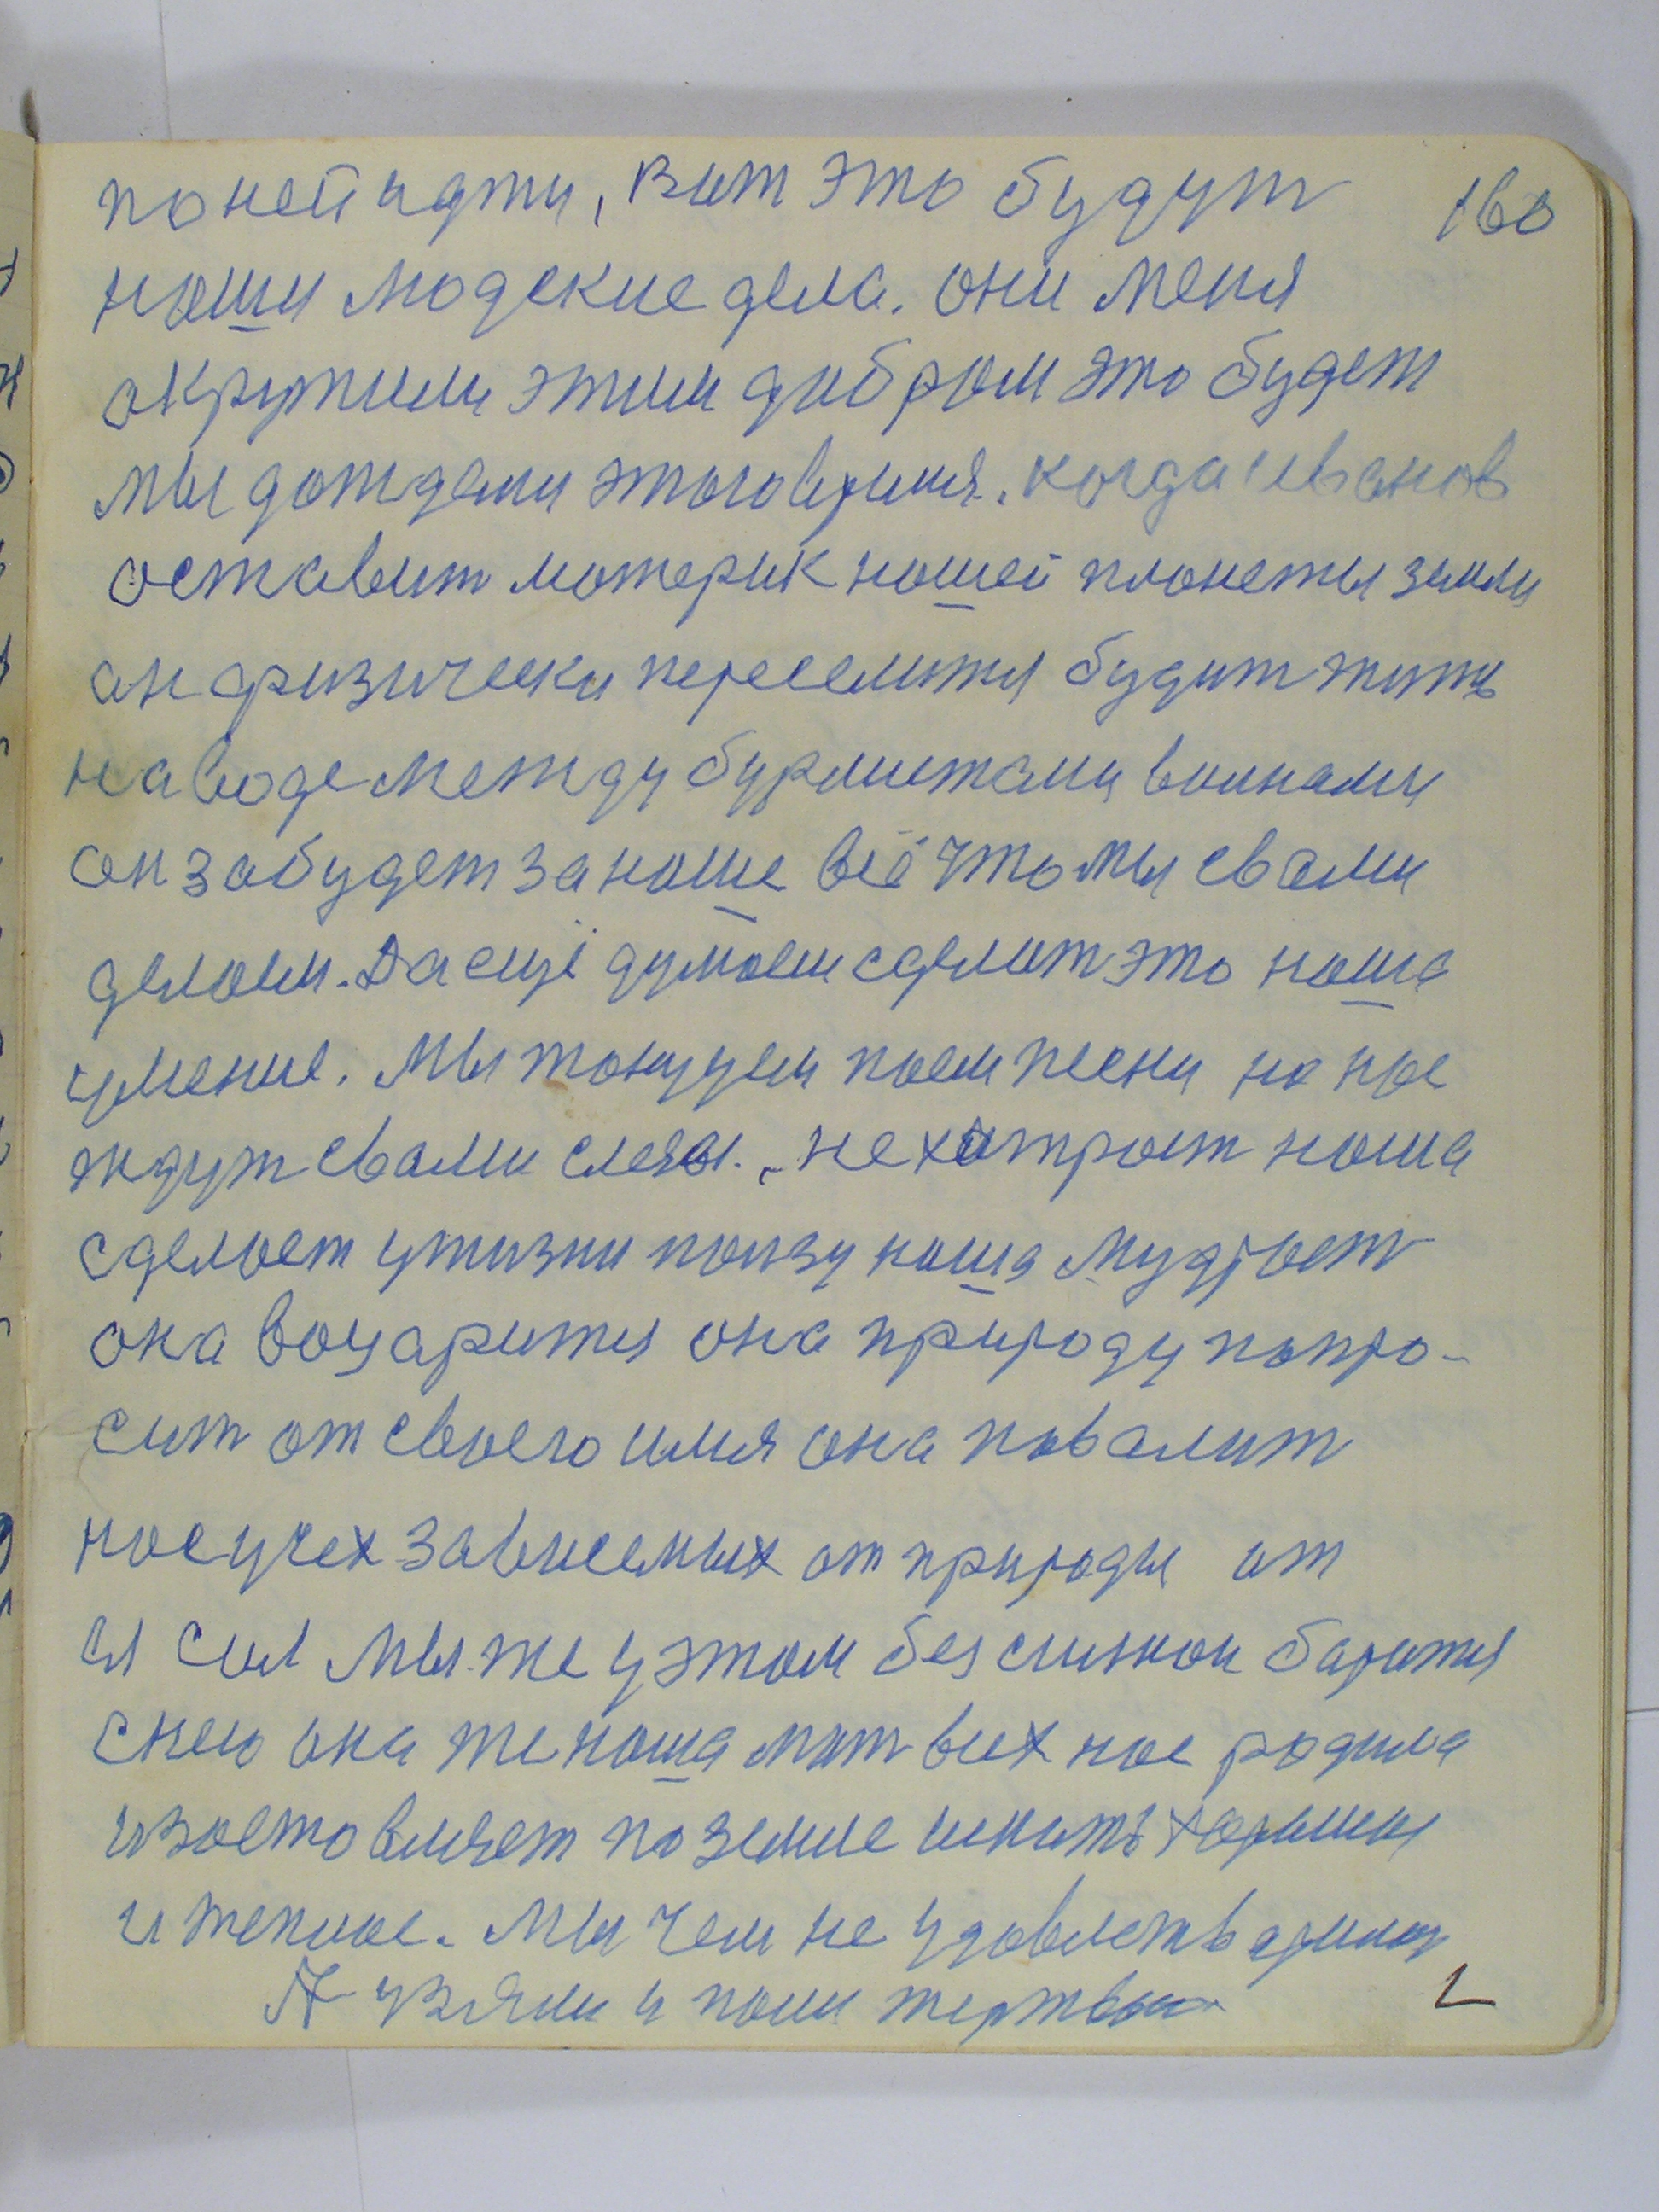 по ней идти, Вот это будут 160
наши людские дела. они меня
окружили этим добром это будет
мы дождали этого время. когда иванов
оставит материк нашей планеты земли
он физически переселится будит жить
на воде между бурлистами волнами
он забудет за наше всё что мы свами
делаем. Да ещё думаем сделат это наша
умение. Мы танцуем поем песни но нас
ждут свами слезы. не хитрост наша
сделает у жизни ползу наша мудрост
она воцарится она природу попро-
сит от своего имя она повалит
нас усех зависемых от природы от
ея сил мы же у этом бессилнои боротся
снею она же наша мат всех нас родила
и заставляет по земле искать хорошия
и теплое. Мы чем не удовлетварилис
А узяли и пали жертвои